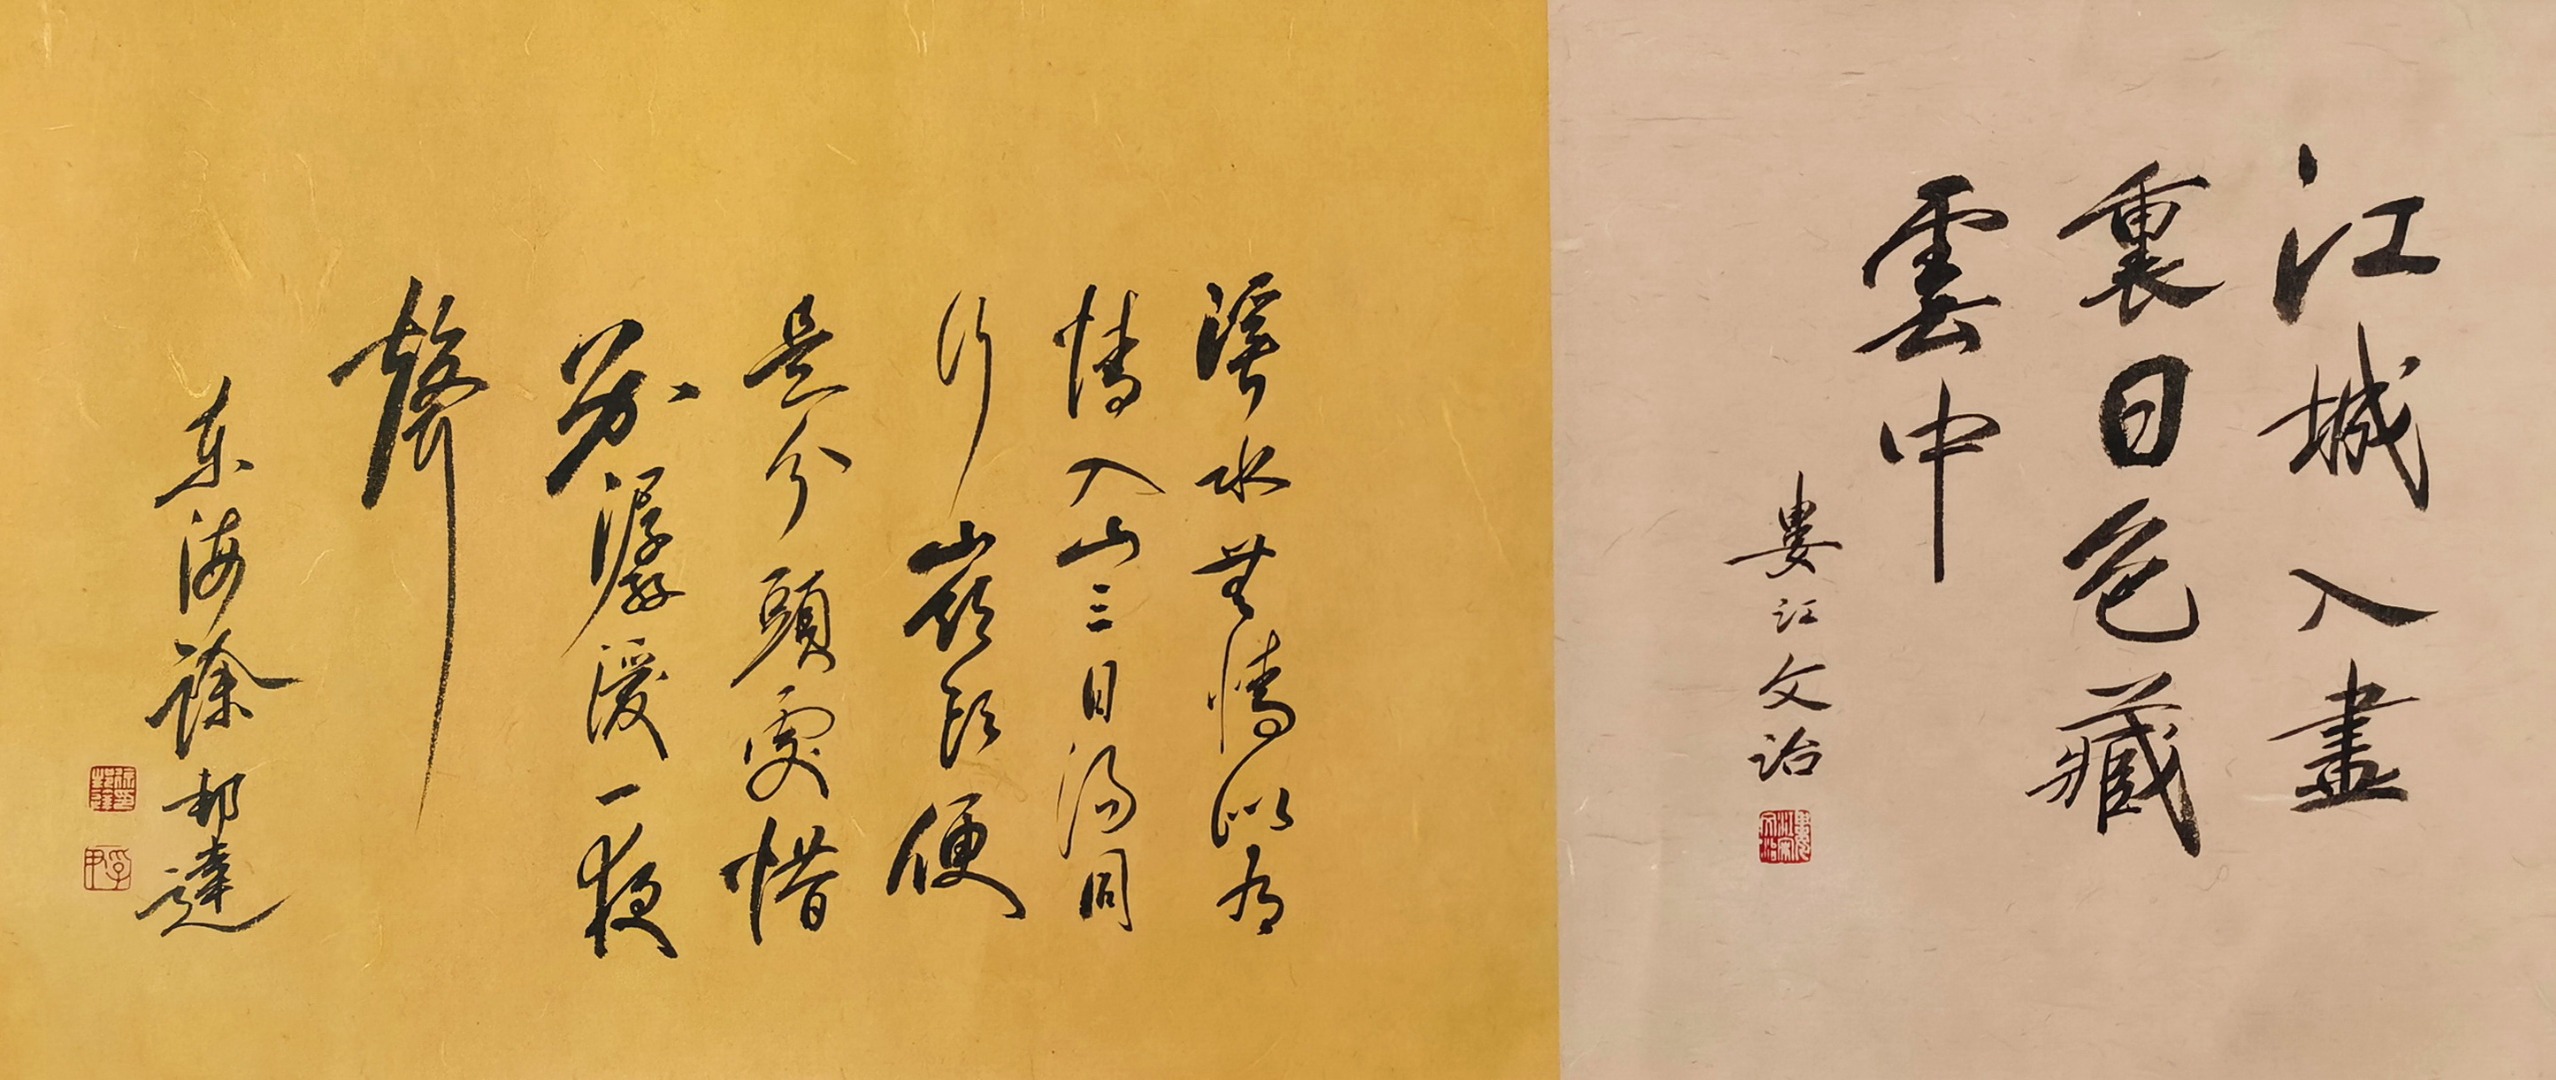 江城入畫
裏日色藏
雲中
婁江文治
溪水無情似有
情入山三日得同
行嶺頭便
是分頭處惜
別潺湲一夜
聲
東海徐邦達